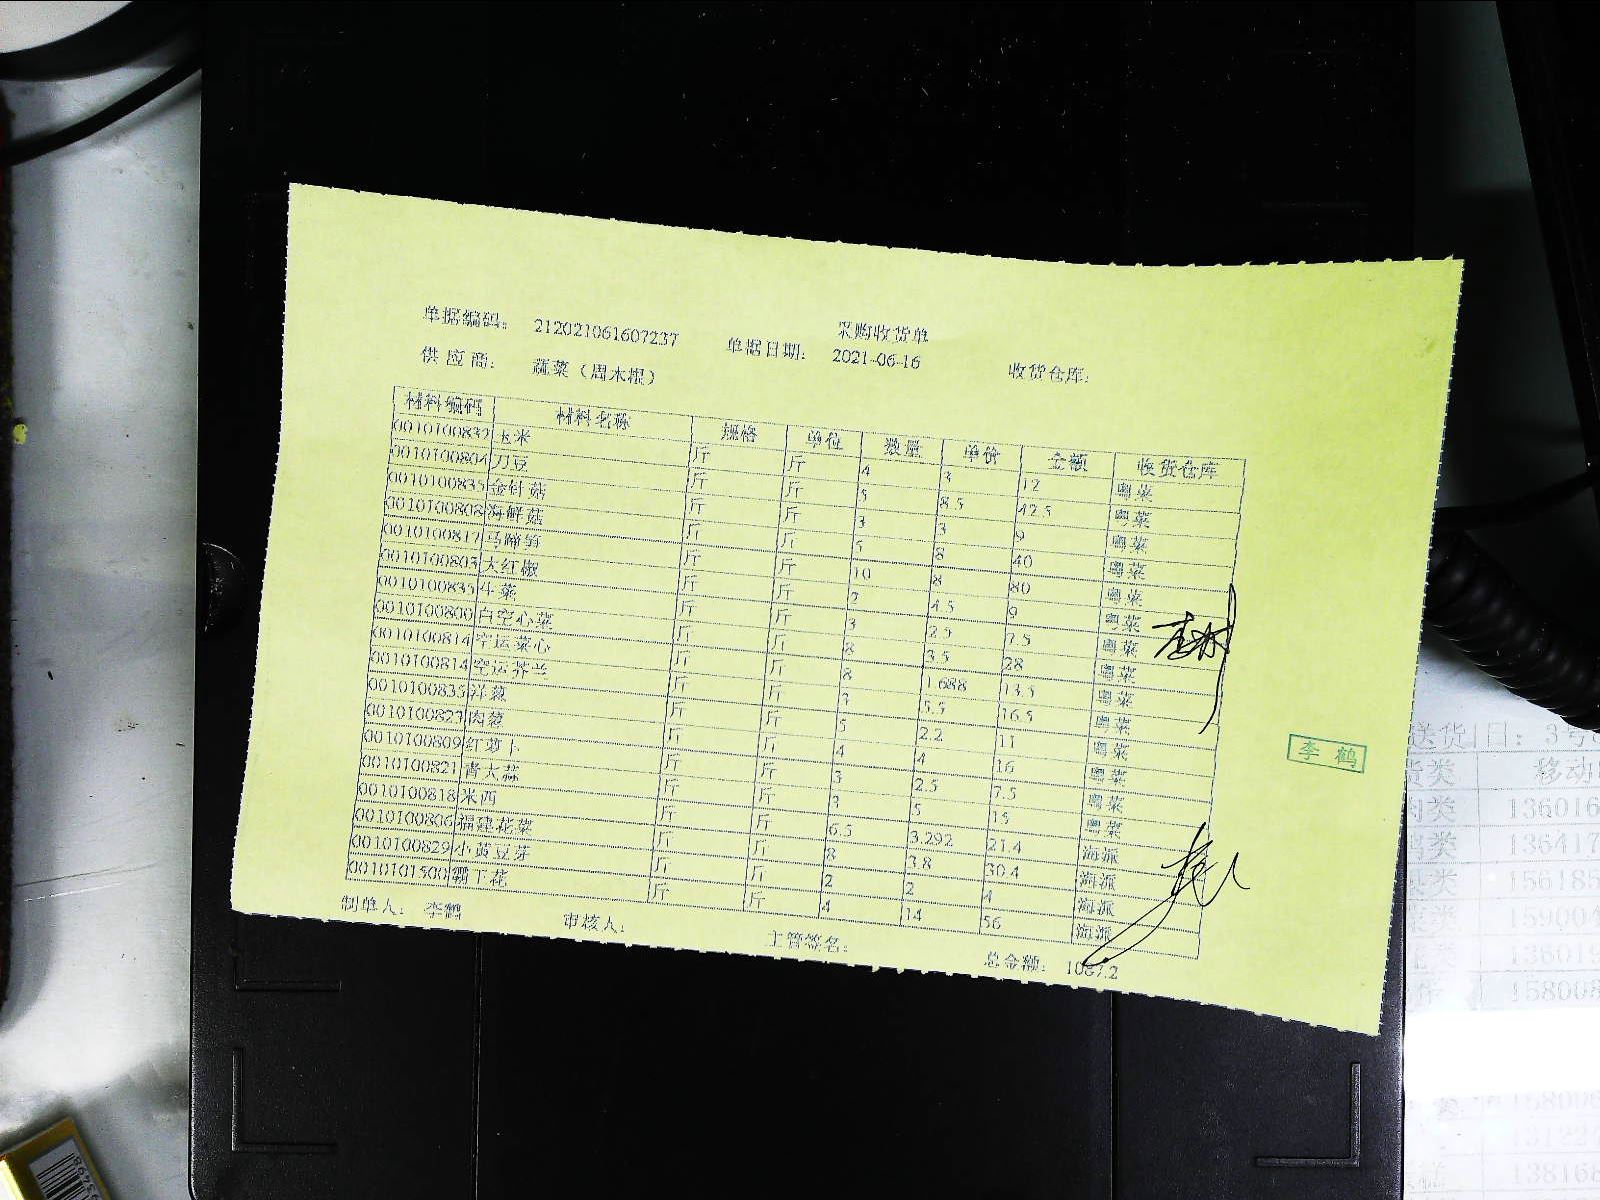 采购收货单
单据编码: 212021061607237 单据日期: 2021-06-16 收货仓库:
供应商: 蔬菜（周木根）
材料编码 材料名称 规格 单位 数量 单价 金额 收货仓库
0010100832 玉米 斤 斤 4 3 12 粤菜
0010100804 刀豆 斤 斤 5 8.5 42.5 粤菜
0010100835 金针菇 斤 斤 3 3 9 粤菜
0010100808 海鲜菇 斤 斤 5 8 40 粤菜
0010100817 马蹄笋 斤 斤 10 8 80 粤菜
0010100803 大红椒 斤 斤 2 4.5 9 粤菜
0010100835 生菜 斤 斤 3 2.5 7.5 粤菜
0010100800 白空心菜 斤 斤 8 3.5 28 粤菜
0010100814 空运菜心 斤 斤 8 1.688 13.5 粤菜
0010100814 空运芥兰 斤 斤 3 5.5 16.5 粤菜
0010100835 洋葱 斤 斤 5 2.2 11 粤菜
0010100823 肉葱 斤 斤 4 4 16 粤菜
0010100809 红萝卜 斤 斤 3 2.5 7.5 粤菜
0010100821 青大蒜 斤 斤 3 5 15 粤菜
0010100818 米西 斤 斤 6.5 3.292 21.4 海派
0010100806 福建花菜 斤 斤 8 3.8 30.4 海派
0010100829 小黄豆芽 斤 斤 2 2 4 海派
0010101500 霸王花 斤 斤 4 14 56 海派
制单人: 李鹤 审核人: 主管签名: 总金额: 1087.2
李鹤
送货日: 3号
移动
肉类 136016
136417
156185
159004
136019
158008
158006
131227
138168